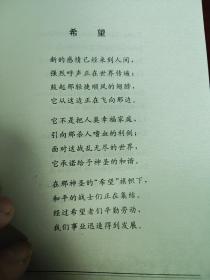 希望
新的感情已经来到人间，
强烈呼声正在世界传遍；
鼓起那轻捷顺风的翅膀，
它从这边正在飞向那边。
它不是把人类幸福家庭，
引向那杀人嗜血的利剑；
面对这战乱无尽的世界，
它承诺给予神圣的和谐。
在那神圣的“希望”旗帜下，
和平的战士们正在集结，
经过希望者们辛勤劳动，
我们事业迅速得到发展。